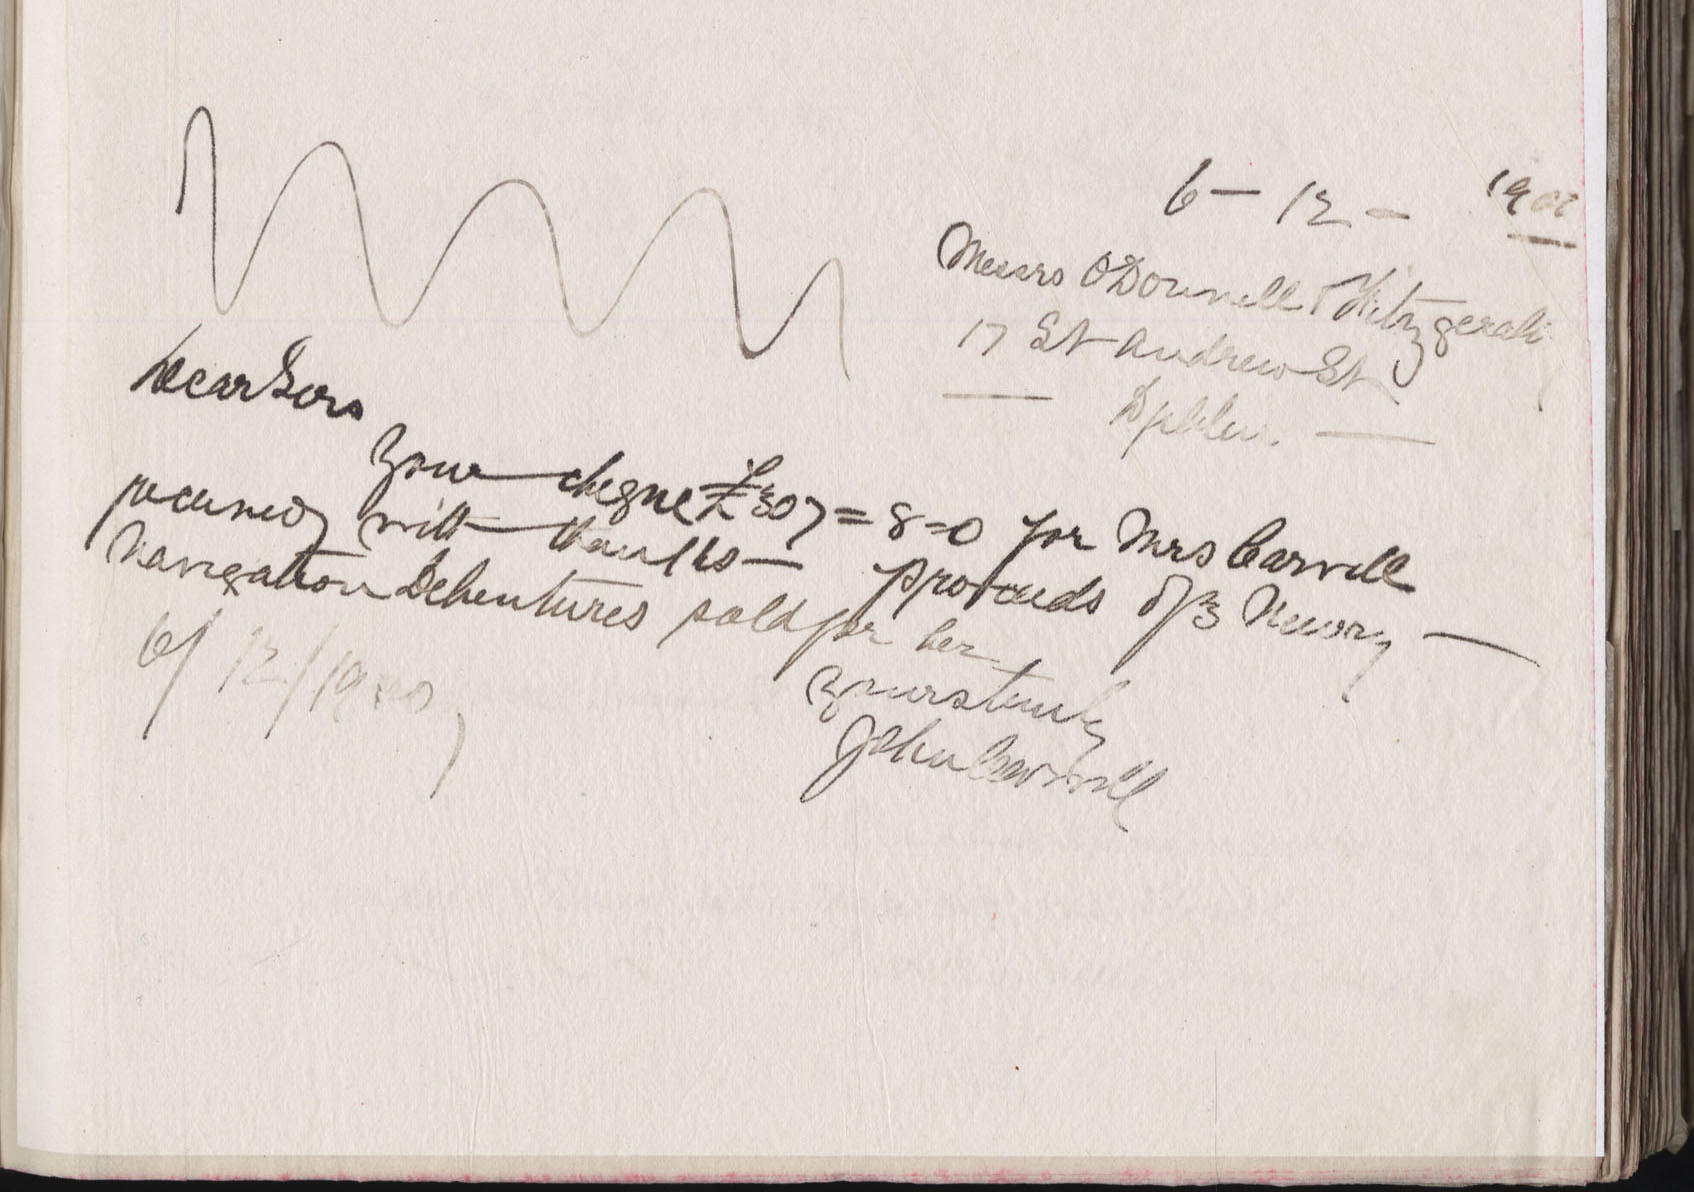 6 - 12 - 1907
Messrs O'Donnell & Fitzgerald
17 St Andrew St
Dublin.
Dear Sirs
Your cheque £307 = 8 - 0 for Mrs Carvill
received with thanks — proceeds of 3 Newry —
Navigation Debentures sold for her -
Yours truly
John Carvill
6/12/1907